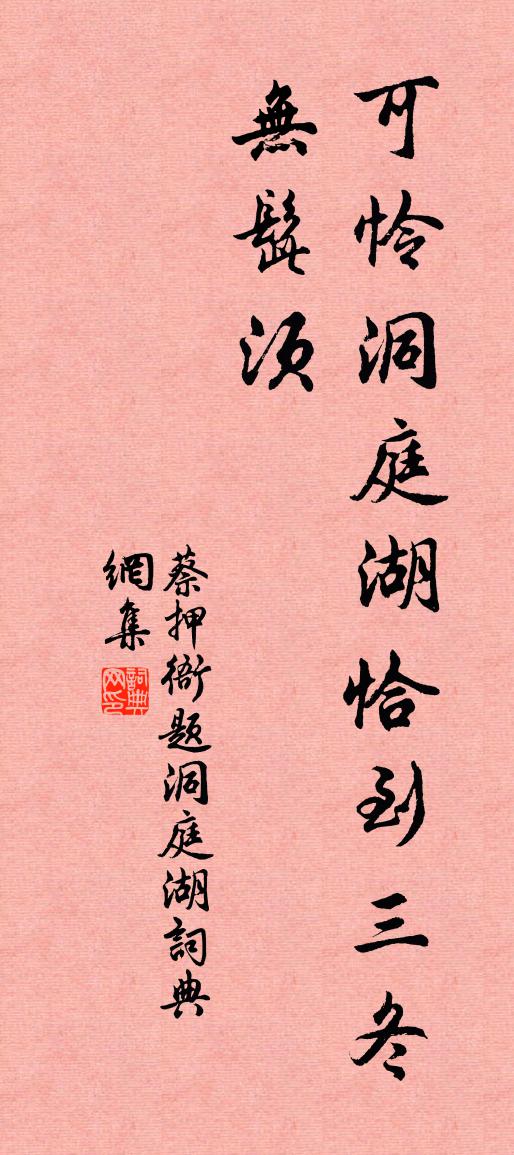 可怜洞庭湖恰到三冬
無髭须
蔡押衙题洞庭湖詞典
網集
詞典网印